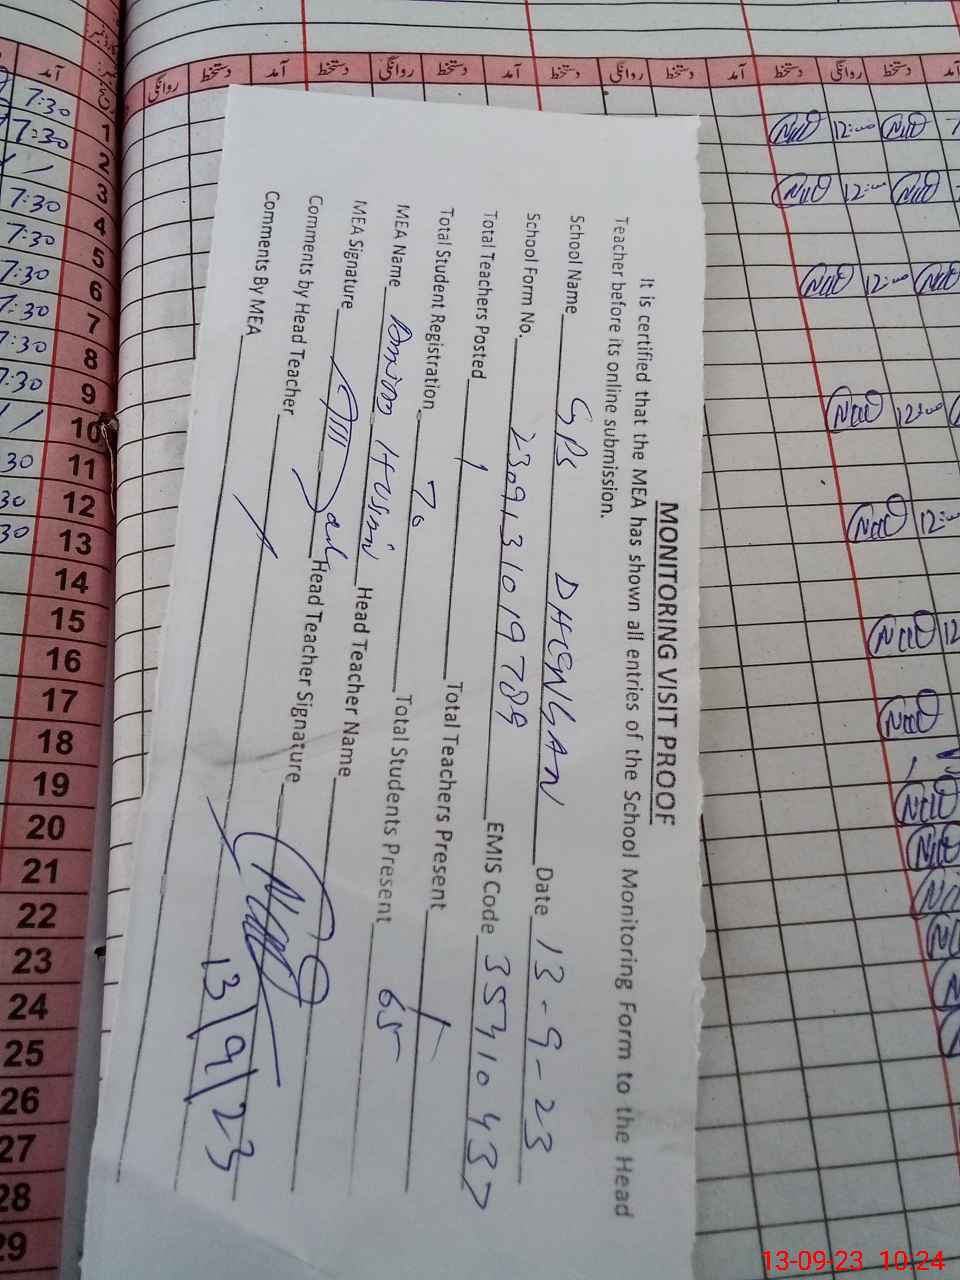 MONITORING VISIT PROOF
It is certified that the MEA has shown all entries of the School Monitoring Form to the Head
Teacher before its online submission.
School Name GPS DHEWGAN Date 13-9-23
School Form No. 2309131019789 EMIS Code 35410437
Total Teachers Posted 1 Total Teachers Present 1
Total Student Registration 70 Total Students Present 65
MEA Name Head Teacher Name
MEA Signature Head Teacher Signature
Comments by Head Teacher
Comments By MEA
13/9/23
آمد
روانگی دستخط آمد دستخط روانگی دستخط آمد دستخط روانگی دستخط آمد دستخط روانگی دستخط آمد
7:30 1
7:30 2
3
7:30 4
7:30 5
7:30 6
7:30 7
7:30 8
7:30 9
10
30 11
30 12
30 13
14
15
16
17
18
19
20
21
22
23
24
25
26
27
28
29
12:00
12:00
12:00
12:00
12:
12
13-09-23 10:24